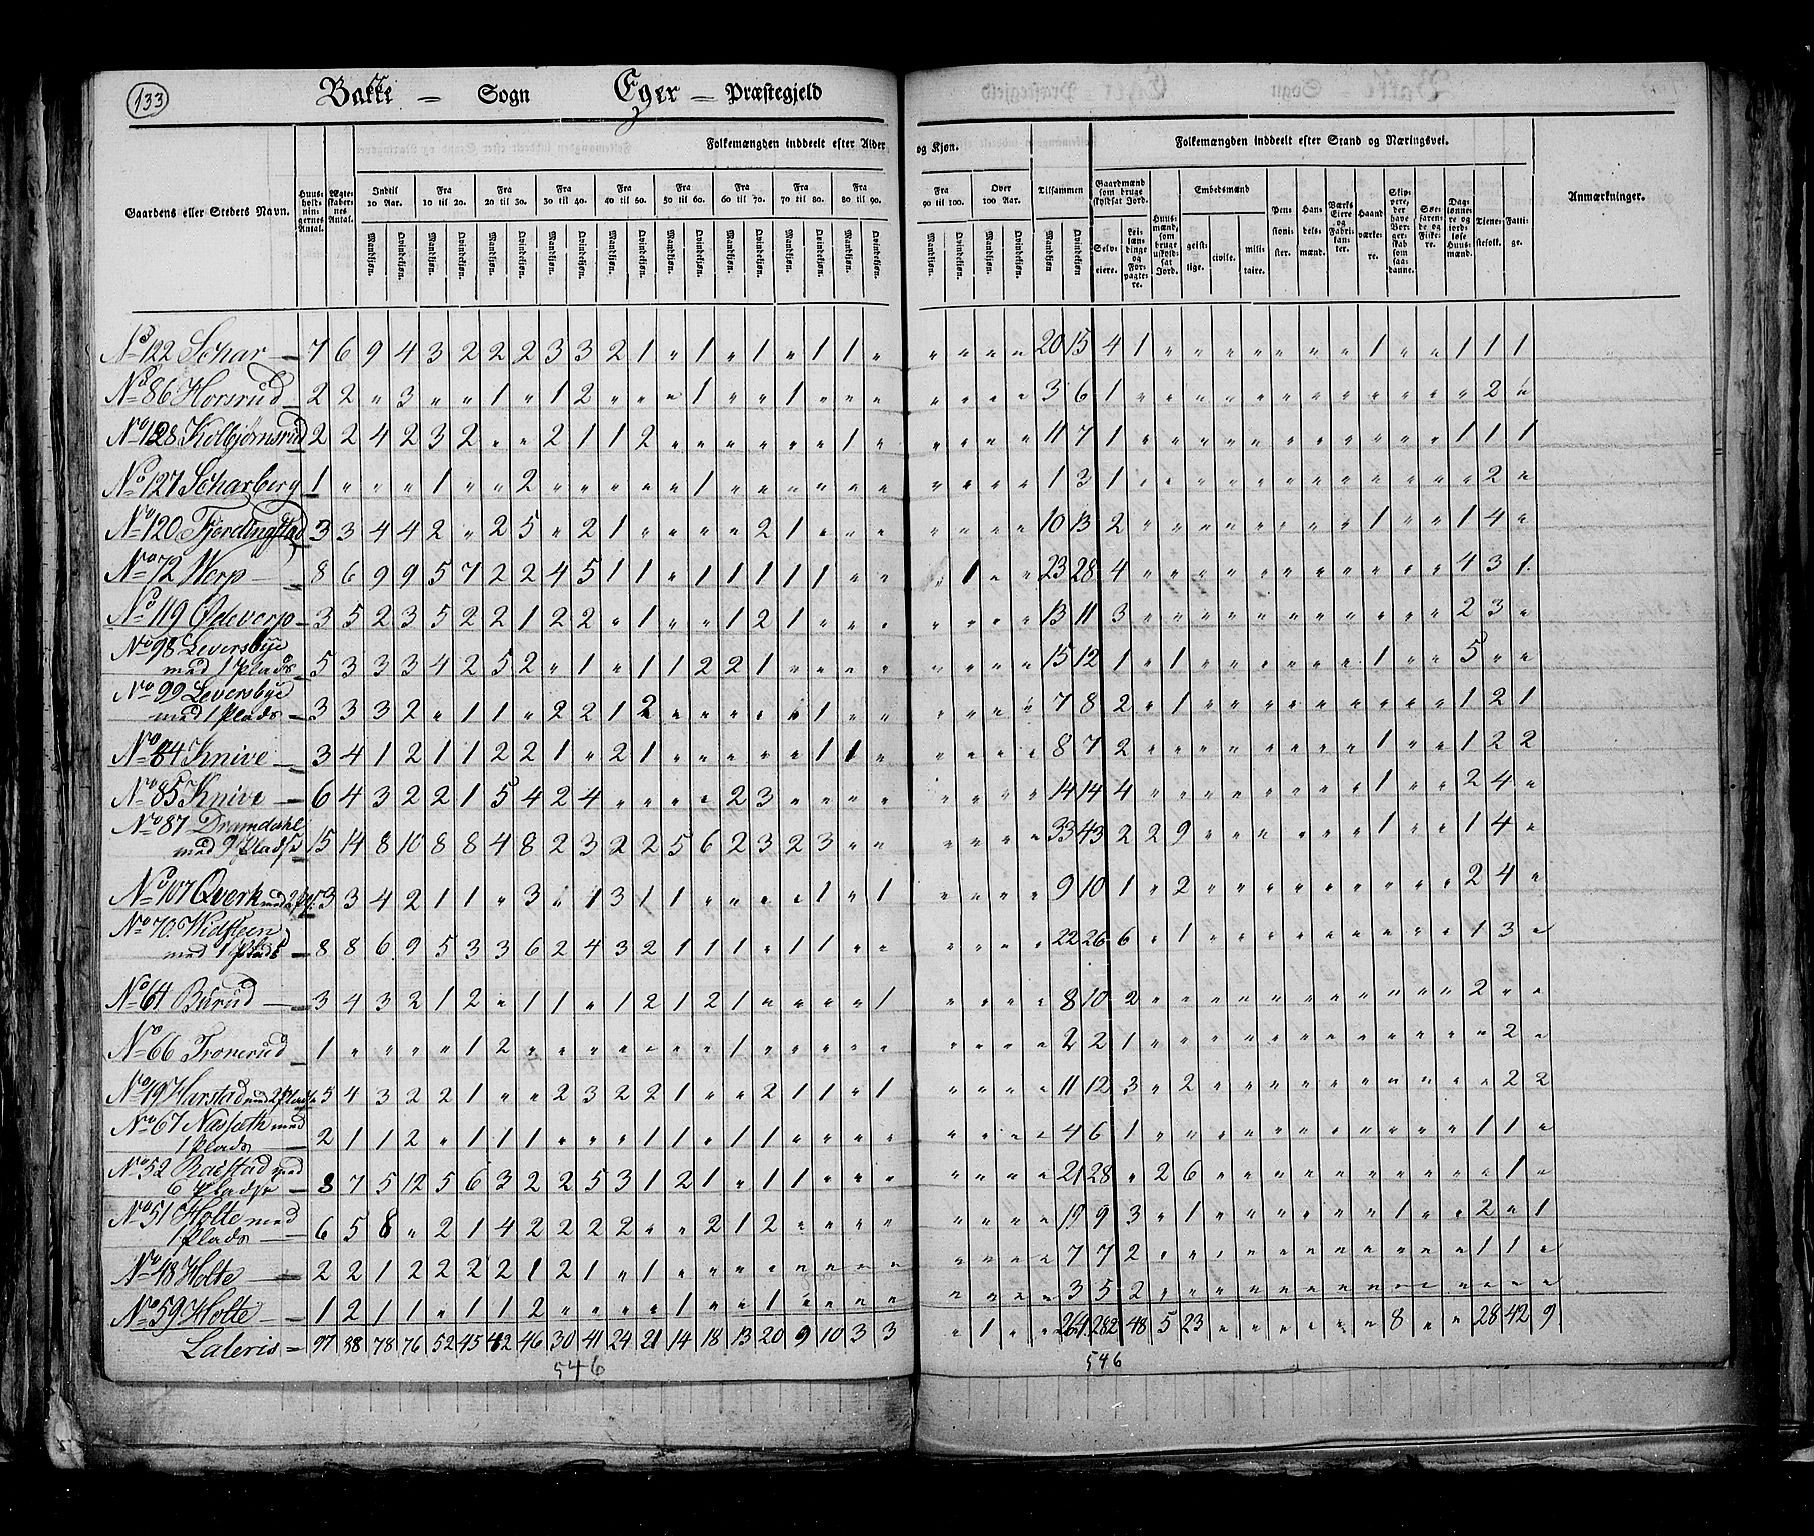 133
Bakke = Sogn Eger = Præstegjeld
Folkemængden inddeelt efter Alder og Kjøn.
Folkemængden inddeelt efter Stand og Næringsvei.
Gaardens eller Stedets Navn.
Huusholdningernes Antal.
Ægteskabernes Antal.
Indtil 10 Aar.
Fra 10 til 20.
Fra 20 til 30.
Fra 30 til 40.
Fra 40 til 50.
Fra 50 til 60.
Fra 60 til 70.
Fra 70 til 80.
Fra 80 til 90.
Fra 90 til 100.
Over 100 Aar.
Tilsammen
Mandkjøn. Qvindekjøn.
Gaardmænd som bruge skyldsat Jord.
Selveiere.
Leilændinge og Forpagtere.
Huusmænd, som bruge uskyldsat Jord.
Embedsmænd
geistlige.
civile.
militaire.
Pensionister.
Handelsmænd.
Værks Eiere og Fabrikanter.
Haandværkere.
Skippere, der have Borgerskab som saadanne.
Søefarende og Fiskere.
Daglønnere og jordløse Huusmænd.
Tjenestefolk.
Fattige.
Anmærkninger.
No 122 Schar 7 6 9 4 3 2 2 2 3 3 2 1 " 1 " 1 " 1 1 " " " " " 20 15 4 1 " " " " " " " 1 " " 1 1 1
No 86 Horsrud 2 2 " 3 " " 1 " 1 2 " " " 1 " " 1 " " " " " " " 3 6 1 " " " " " " " " " " " " 2 "
No 128 Kolbjørnsrud 2 2 4 2 3 2 " " 2 1 1 2 " " " " " " 1 " " " " " 11 7 1 " " " " " " " " " " " 1 1 1
No 127 Scharberg 1 " " " 1 " " 2 " " " " " 1 " " " " " " " " " " 1 3 1 " " " " " " " " " " " " 2 "
No 120 Fjerdingstad 3 3 4 4 2 " 2 5 " 2 1 " " " " 2 1 " " " " " " " 10 13 2 " " " " " " " " 1 " " 1 4 "
No 72 Werp 8 6 9 9 5 7 2 2 4 5 1 1 " 1 1 1 1 1 " " " 1 " " 23 28 4 " " " " " " " " " " " 4 3 1
No 119 Ødeverp 3 5 2 3 5 2 2 1 2 2 " 1 " " 1 2 1 " " " " " " " 13 11 3 " " " " " " " " " " " 2 3 "
No 98 Leversbye
med 1 Plads 5 3 3 3 4 2 5 2 " 1 " 1 1 2 2 1 " " " " " " " " 15 12 1 " 1 " " " " " " 1 " " 5 " "
No 99 Leversbye
med 1 Plads 3 3 3 2 " 1 1 " 2 2 1 2 " " " " " 1 " " " " " " 7 8 2 " 1 " " " " " " " " " 1 2 1
No 84 Knive 3 4 1 2 1 1 2 2 1 " 2 1 " " " " " 1 1 " " " " " 8 7 2 " " " " " " " " 1 " " 1 2 2
No 85 Knive 6 4 3 2 2 1 5 4 2 4 " " " " 2 3 " " " " " " " " 14 14 4 " " " " " " " " 1 " " 2 4 "
No 87 Dramdahl
med 9 Pladse 15 14 8 10 8 8 4 8 2 3 2 2 5 6 2 3 2 3 " " " " " " 33 43 2 2 9 " " " " " " 1 " " 1 4 "
No 107 Qverk med 2 Pl. 3 3 4 2 1 1 " 3 " 1 3 1 1 " " " " 1 " 1 " " " " 9 10 1 " 2 " " " " " " " " " 2 4 "
No 70. Widsteen
med 1 Plads 8 8 6 9 5 3 3 6 2 4 3 2 1 1 1 " 1 1 " " " " " " 22 26 6 " 1 " " " " " " " " " 1 3 "
No 64 Burud 3 4 3 2 1 2 " 1 1 " 1 2 1 2 1 " " " " 1 " " " " 8 10 2 " " " " " " " " " " " 2 " "
No 66 Tronerud 1 " " " " 1 2 " " " " " " " 1 " " " " " " " " " 2 2 1 " " " " " " " " " " " " 2 "
No 19 Harstad med 2 Pladse 5 4 3 2 2 1 " " 2 3 2 2 1 " " 2 1 1 " 1 " " " " 11 12 3 " 2 " " " " " " " " " " 2 2
No 67 Næseth med
1 Plads 2 1 1 2 " 1 1 1 " " " 1 1 " 1 1 " " " " " " " " 4 6 1 " " " " " " " " " " " 1 1 "
No 52 Baestad med
6 Pladse 8 7 5 12 5 6 3 2 2 5 3 1 2 1 " 1 1 " " " " " " " 21 28 " 2 6 " " " " " " " " " " 1 "
No 51 Holte med
1 Plads 6 5 8 " 2 1 4 2 2 2 2 " " 2 1 2 " " " " " " " " 19 9 3 " 1 " " " " " " 1 " " 2 " 1
No 48 Holte 2 2 1 2 2 2 2 1 2 1 " 1 " " " " " " " " " " " " 7 7 2 " " " " " " " " " " " 1 1 "
No 59 Holte 1 2 1 1 " 1 1 2 " " " " 1 " " 1 " " " " " " " " 3 5 2 " " " " " " " " " " " " " "
Lateris = 97 88 78 76 52 45 42 46 30 41 24 21 14 18 13 20 9 10 3 3 " 1 " " 264 282 48 5 23 " " " " " " 8 " " 28 42 9
546 546